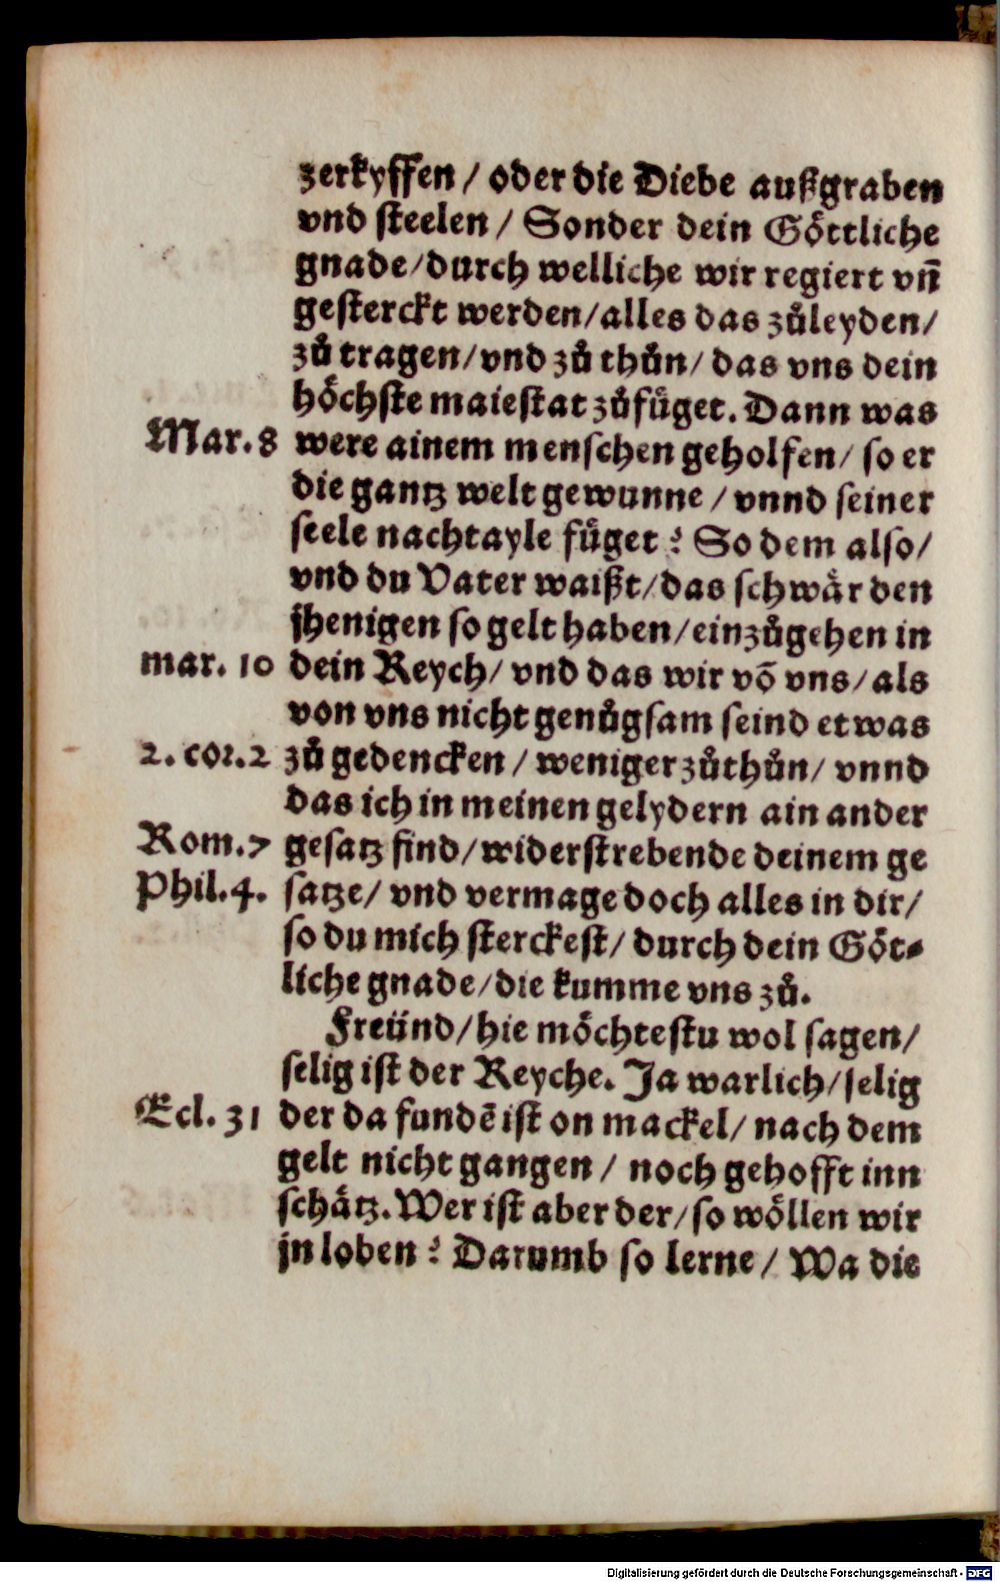 zerkyffen / oder die Diebe außgraben
vnd steelen / Sonder dein Göttliche
gnade/durch welliche wir regiert vñ
gesterckt werden/alles das zůleyden/
zů tragen/vnd zů thůn/ das vns dein
höchste maiestat zůfüget. Dann was
Mar. 8 were ainem menschen geholfen/ so er
die gantz welt gewunne / vnnd seiner
seele nachtayle füget ? So dem also/
vnd du Vater waißt/das schwär den
jhenigen so gelt haben/einzůgehen in
mar. 10 dein Reych/ vnd das wir võ vns/als
von vns nicht genůgsam seind etwas
2. cor. 2 zů gedencken / weniger zůthůn/ vnnd
das ich in meinen gelydern ain ander
Rom. 7 gesatz find/widerstrebende deinem ge
Phil. 4. satze/ vnd vermage doch alles in dir/
so du mich sterckest/ durch dein Göt⸗
liche gnade/die kumme vns zů.
Freünd/hie möchtestu wol sagen/
selig ist der Reyche. Ja warlich/selig
Ecl. 31 der da fundē ist on mackel/ nach dem
gelt nicht gangen / noch gehofft inn
schätz. Wer ist aber der/so wöllen wir
jn loben ? Darumb so lerne / Wa die
Digitalisierung gefördert durch die Deutsche Forschungsgemeinschaft - DFG